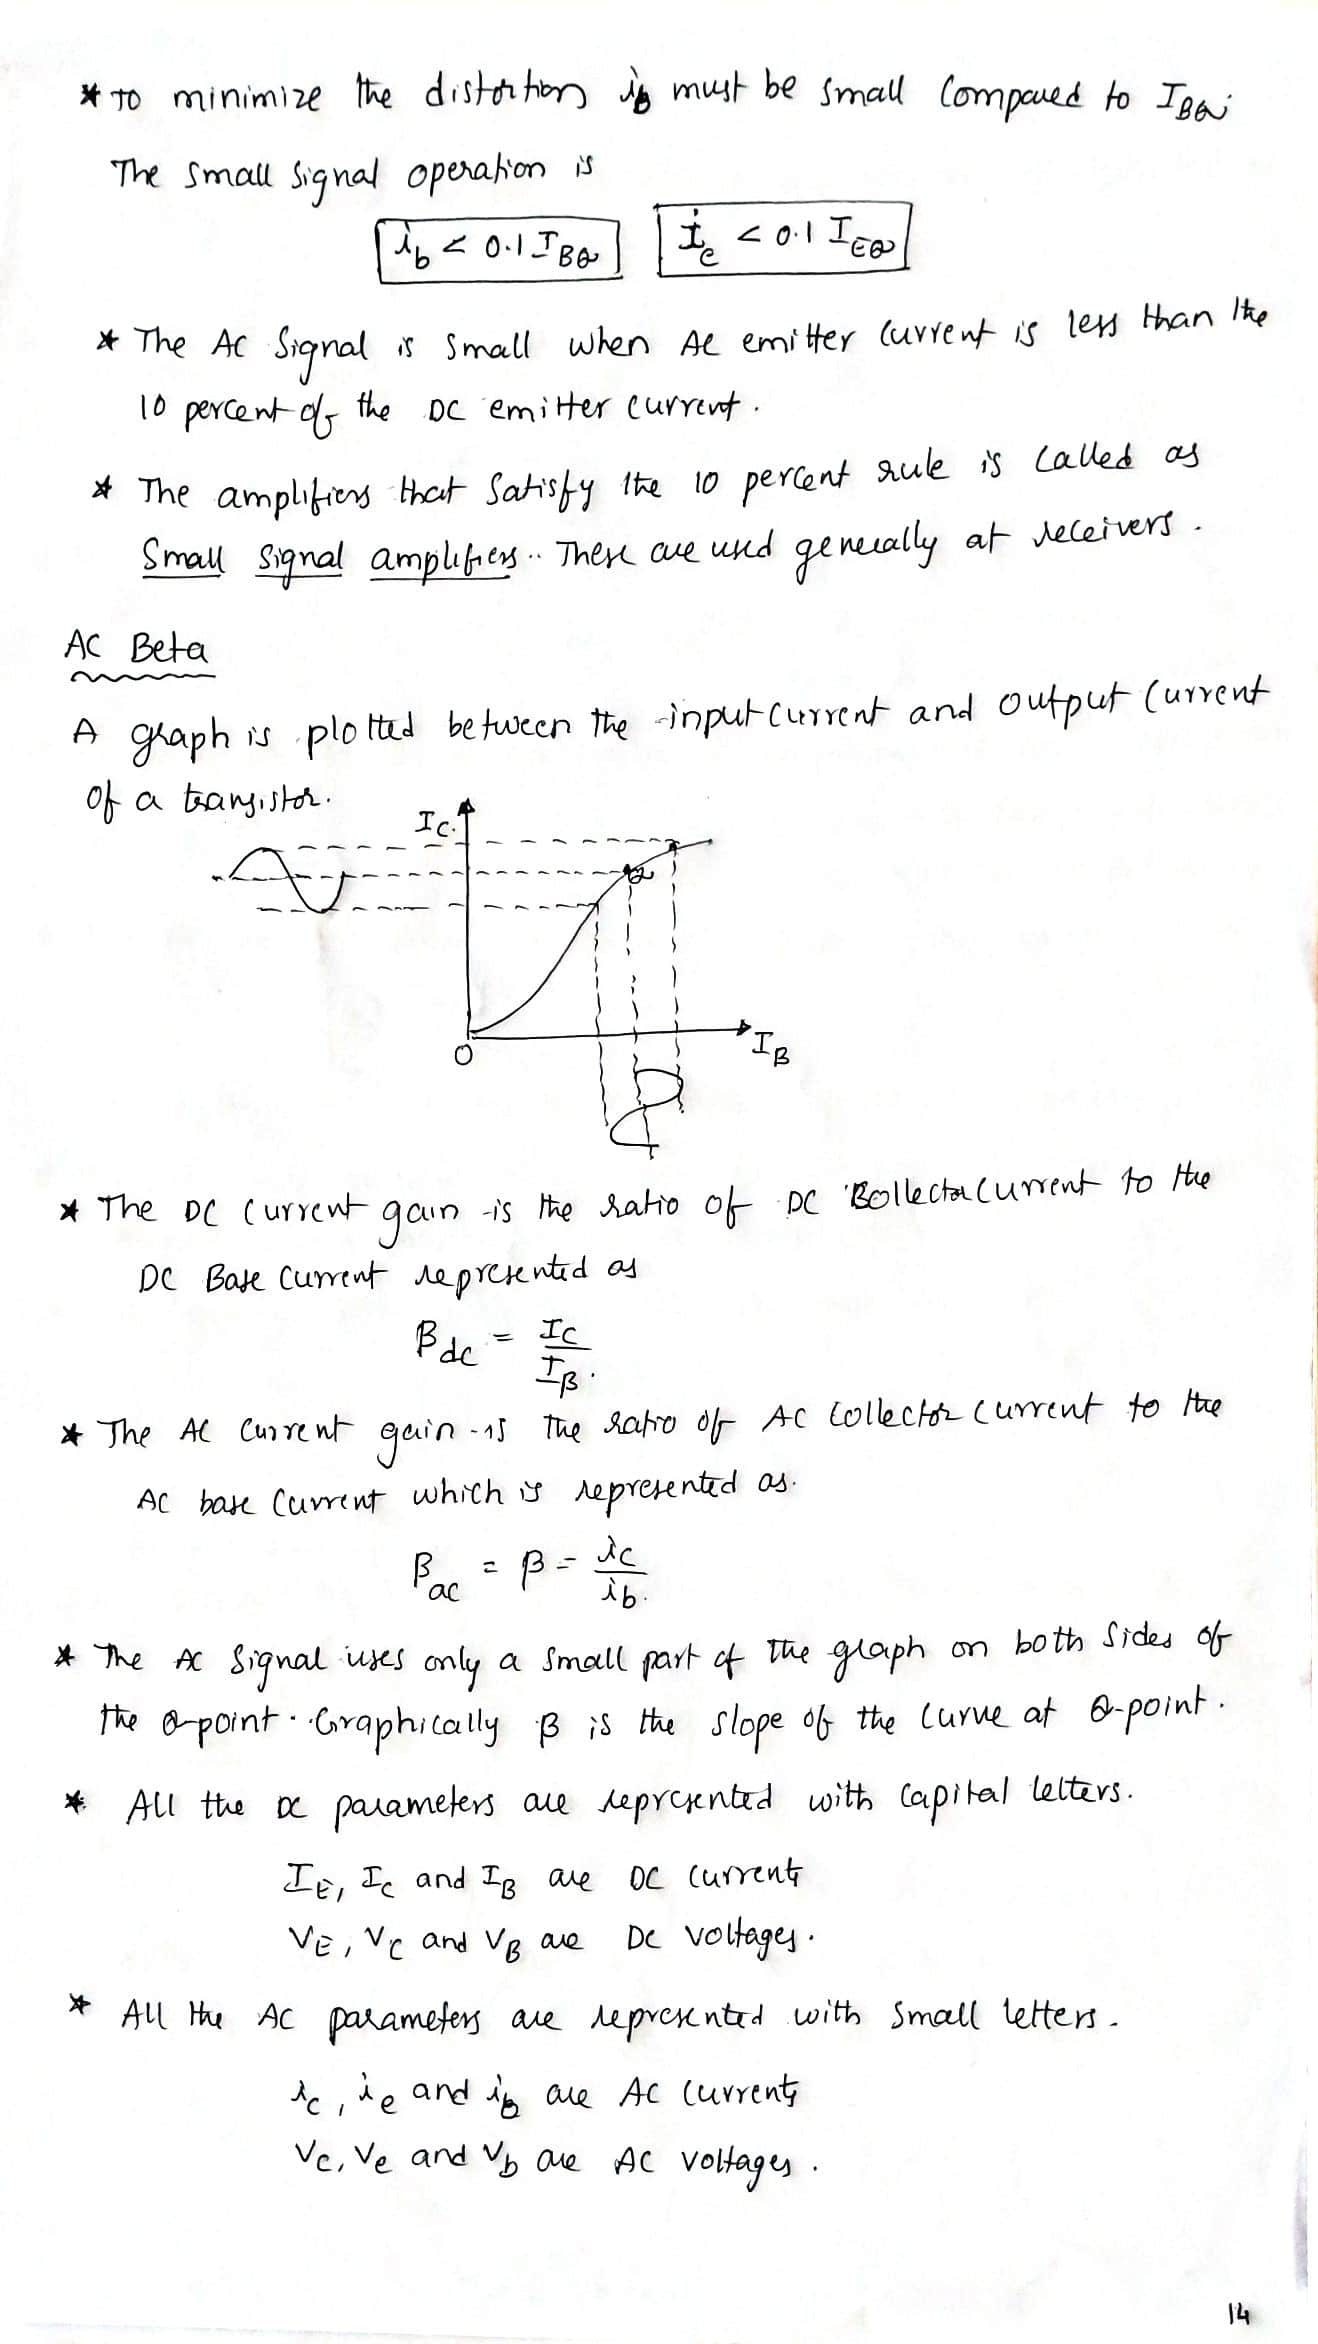 * To minimize the distortion ib must be small Compared to IBQ;
The small signal operation is
ib < 0.1 IBQ   ie < 0.1 IEQ
* The AC Signal is small when AC emitter current is less than the
10 percent of the DC emitter current.
* The amplifiers that Satisfy the 10 percent rule is called as
Small Signal amplifiers.. These are used generally at receivers.
AC Beta
A graph is plotted between the input current and output current
of a transistor.
IC
Q
O
IB
* The DC current gain is the ratio of DC Collector current to the
DC Base current represented as
βdc = IC/IB.
* The AC Current gain is the ratio of AC Collector current to the
AC base current which is represented as.
βac = β = ic/ib.
* The AC Signal uses only a small part of the graph on both sides of
the Q-point. Graphically β is the slope of the curve at Q-point.
* All the DC parameters are represented with capital letters.
IE, IC and IB are DC currents
VE, VC and VB are DC voltages.
* All the AC parameters are represented with small letters.
ic, ie and ib are AC currents
Vc, Ve and Vb are AC voltages.
14